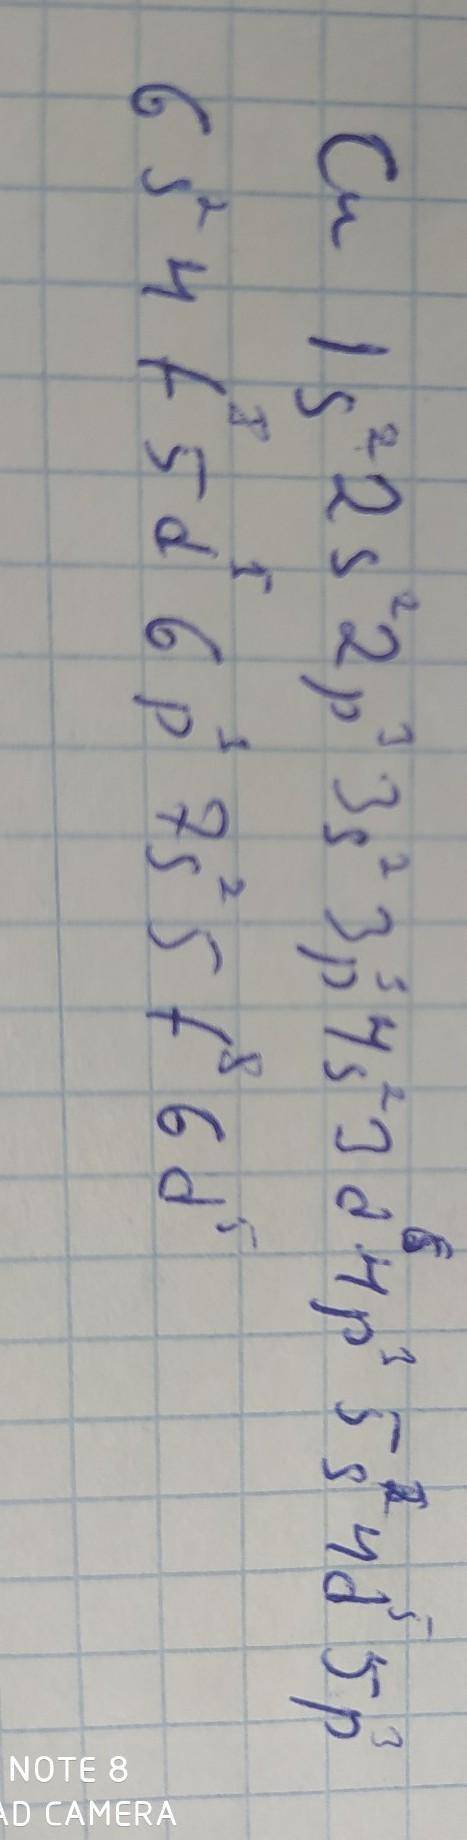 Cu 1s² 2s² 2p³ 3s² 3p³ 4s² 3d⁶ 4p³ 5s² 4d⁵ 5p³
6s² 4f⁸ 5d⁵ 6p³ 7s² 5f⁸ 6d⁵
NOTE 8
AD CAMERA